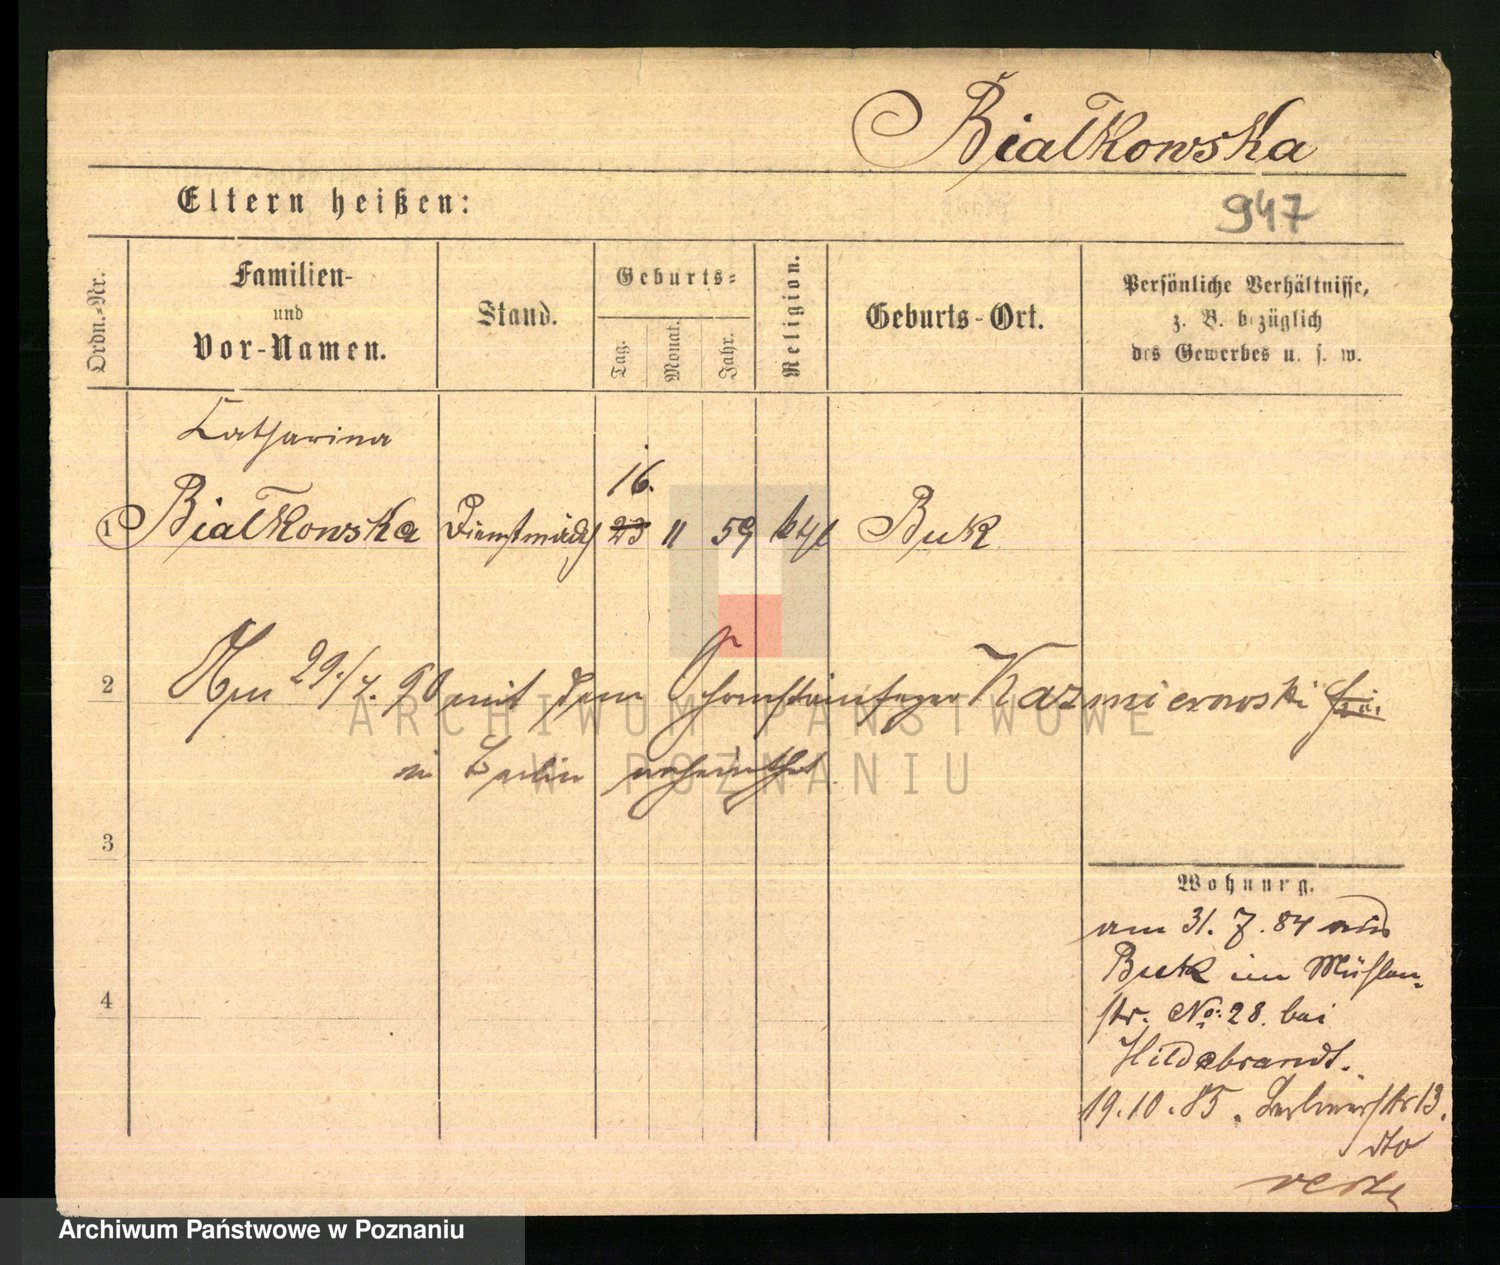 Bialkowska
Eltern heißen:
947
Ordn.-Nr.
Familien-
und
Vor-Namen.
Stand.
Geburts-
Tag.
Monat.
Jahr.
Religion.
Geburts-Ort.
Persönliche Verhältnisse,
z. B. bezüglich
des Gewerbes u. s. w.
Catharina
16.
1 Bialkowska Dienstmädch 23 11 59 ktgl Buk
2 Am 29./4. 90 mit dem Schornsteinfeger Kazmierowski
in Berlin verheirathet
3
4
Wohnung.
am 31. 7. 84 aus
Buk im Mühlen-
str. No: 28. bei
Hildebrandt.
19.10.85. Berlinerstr 13.
dto
verte
ARCHIWUM PAŃSTWOWE
W POZNANIU
Archiwum Państwowe w Poznaniu